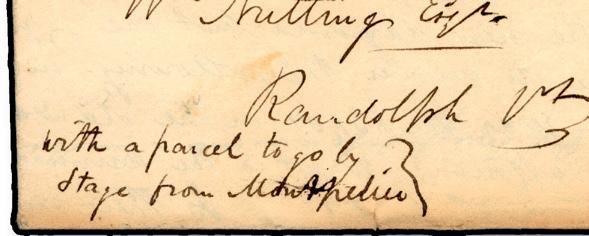 Wm Nutting Esqr.
Randolph Vt
with a parcel to go by
Stage from Montpelier